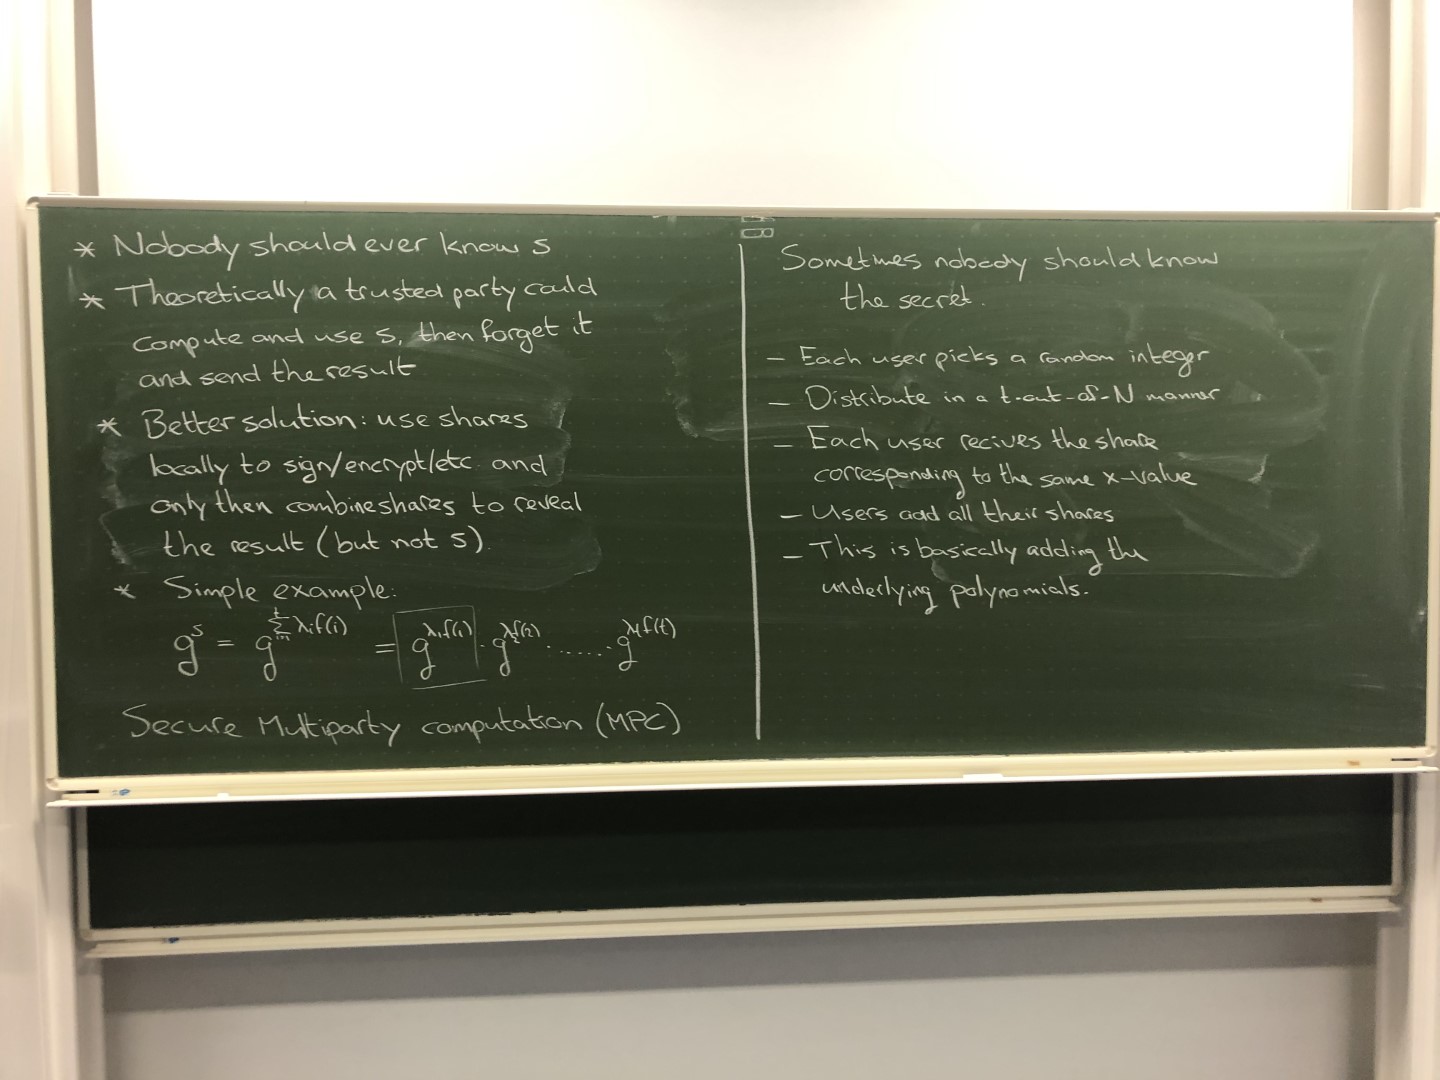 * Nobody should ever know s
* Theoretically a trusted party could
compute and use s, then forget it
and send the result
* Better solution: use shares
locally to sign/encrypt/etc and
only then combine shares to reveal
the result (but not s).
* Simple example:
g^s = g^{\sum_{i=1}^{t} λ_i f(i)} = g^{λ_1 f(1)} · g^{λ_2 f(2)} ....... g^{λ_t f(t)}
Secure Multiparty computation (MPC)
Sometimes nobody should know
the secret.
- Each user picks a random integer
- Distribute in a t-out-of-N manner
- Each user recives the share
corresponding to the same x-value
- Users add all their shares
- This is basically adding the
underlying polynomials.